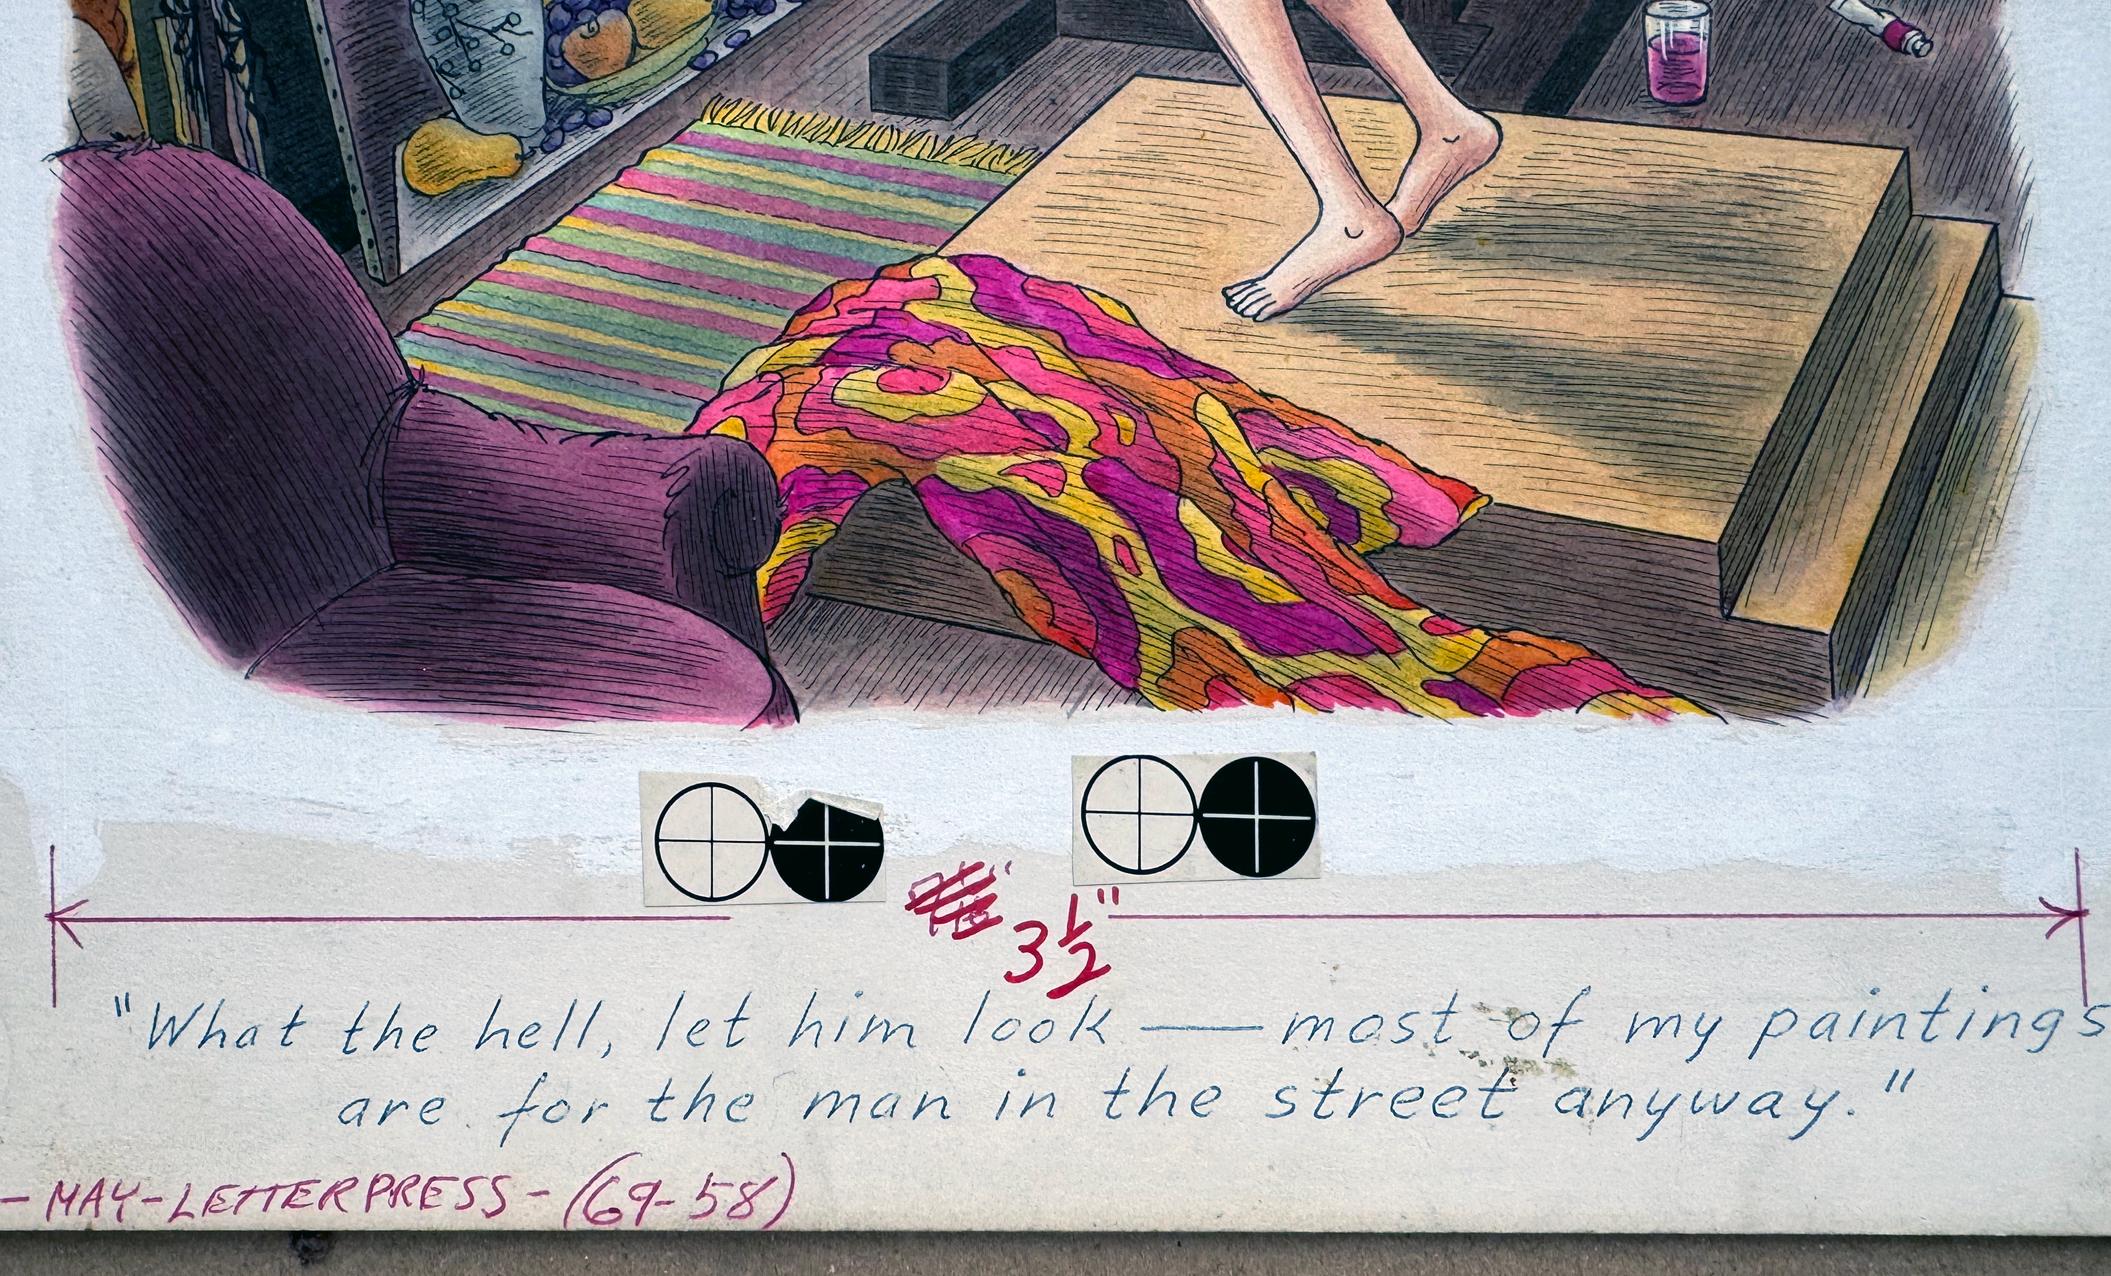 3 1/2"
"What the hell, let him look — most of my paintings
are for the man in the street anyway."
- MAY - LETTERPRESS - (69-58)